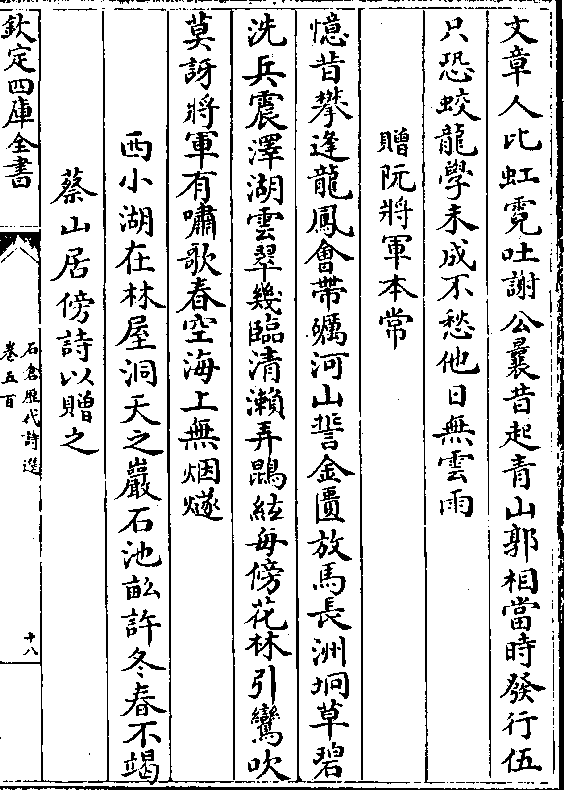 文章人比虹霓吐謝公曩昔起青山郭相當時發行伍
只恐蛟龍學未成不愁他日無雲雨
贈阮將軍本常
憶昔攀逢龍鳳會帶礪河山誓金匱放馬長洲坰草碧
洗兵震澤湖雲翠幾臨清瀨弄鵾絃每傍花林引鸞吹
莫訝將軍有嘯歌春空海上無烟燧
西小湖在林屋洞天之巖石池畝許冬春不竭
蔡山居傍詩以贈之
欽定四庫全書
石倉歷代詩選
卷五百
十八